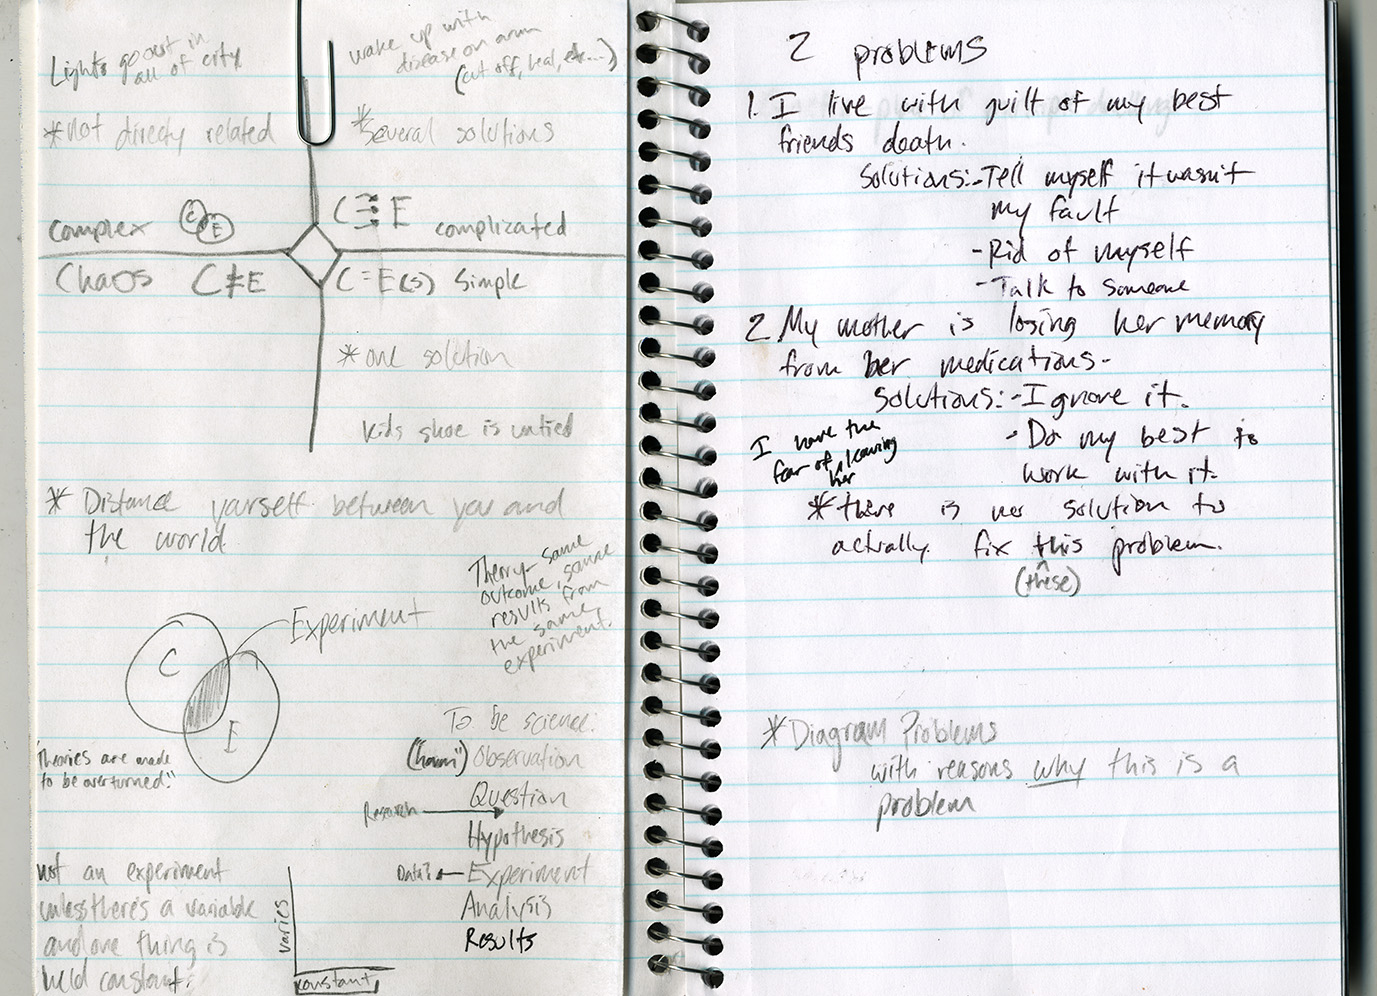 Lights go out in
all of city
wake up with
disease on arm
(cut off, heal, etc...)
*not directly related
*Several solutions
complex C E
C E complicated
Chaos C ≠ E
C = E(s) Simple
*one solution
Kids shoe is untied
* Distance yourself between you and
the world
Theory- same
outcome, same
results from
the same
experiment.
Experiment
C
E
"Theories are made
to be overturned."
To be science:
("hmm") Observation
Question
Research
Hypothesis
Data? Experiment
Analysis
Results
not an experiment
unless there's a variable
and one thing is
held constant.
varies
constant
2 problems
1. I live with guilt of my best
friends death.
Solutions:-Tell myself it wasn't
my fault
-Rid of myself
-Talk to someone
2. My mother is losing her memory
from her medications-
Solutions:-Ignore it.
-Do my best to
work with it.
I have the
fear of leaving
her
*there is no solution to
actually fix this problem.
(these)
*Diagram Problems
with reasons why this is a
problem